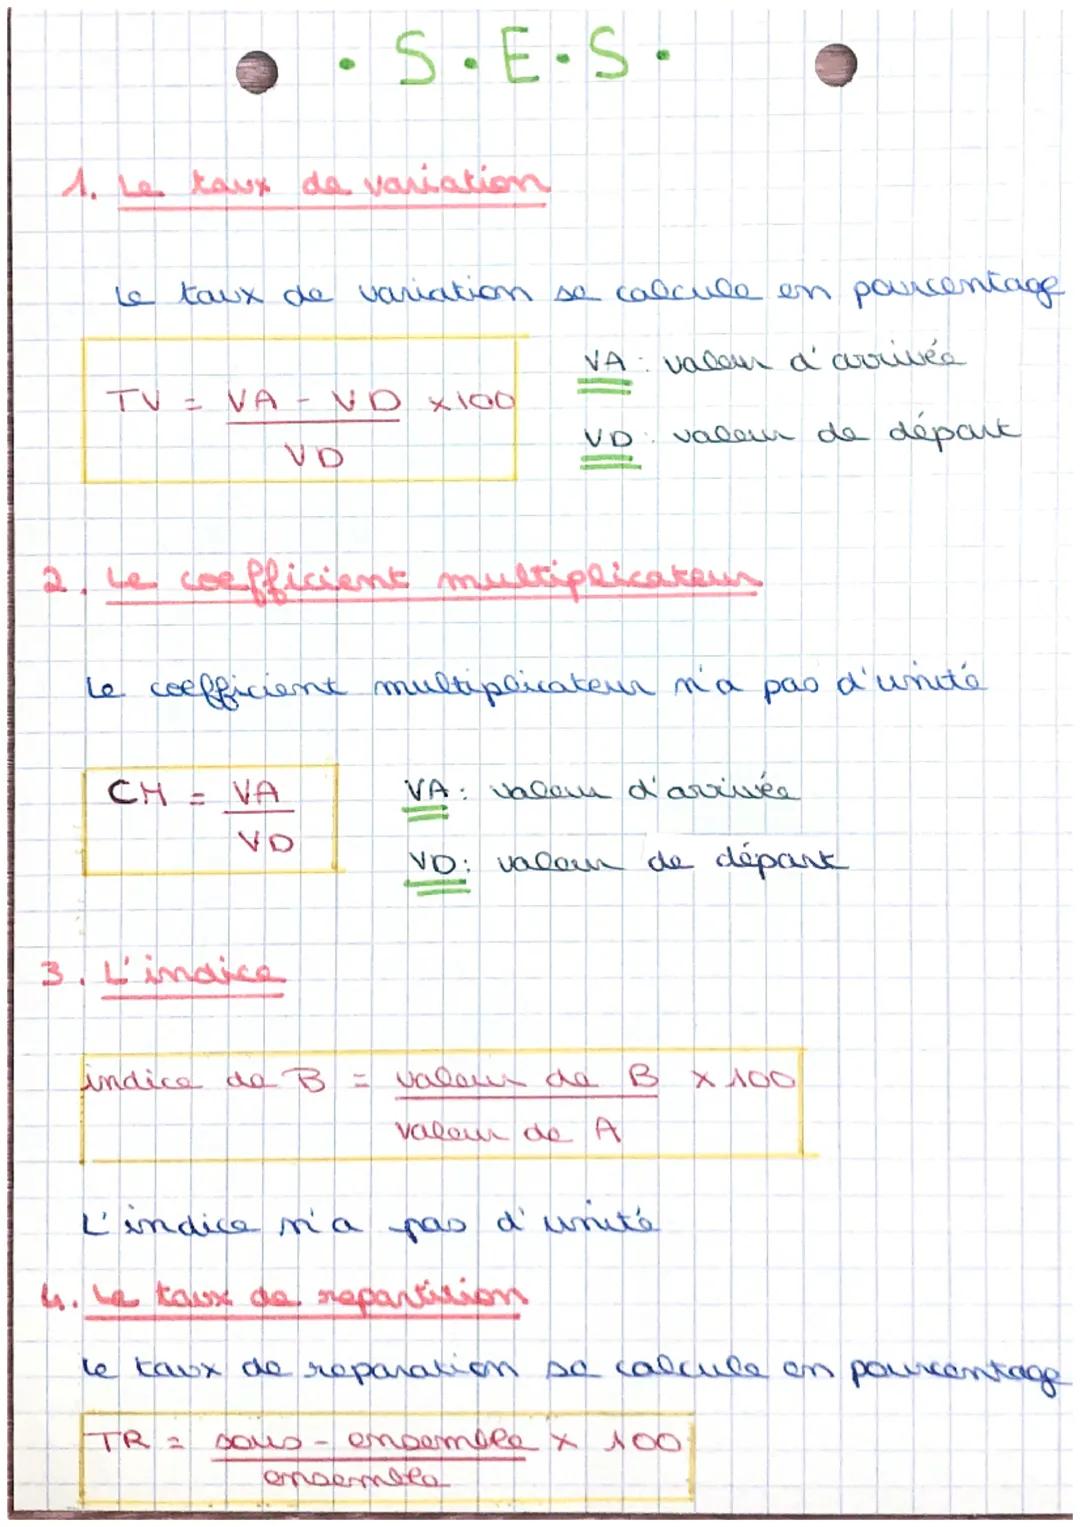 • S • E • S •
1. Le taux de variation
Le taux de variation se calcule en pourcentage
TV = VA - VD x100
VD
VA : valeur d'arrivée
VD : valeur de départ
2. Le coefficient multiplicateur
Le coefficient multiplicateur n'a pas d'unité
CM = VA
VD
VA : valeur d'arrivée
VD : valeur de départ
3. L'indice
indice de B = valeur de B x 100
valeur de A
L'indice n'a pas d'unité
4. Le taux de repartision
le taux de reparation se calcule en pourcentage
TR = sous - ensemble x 100
ensemble